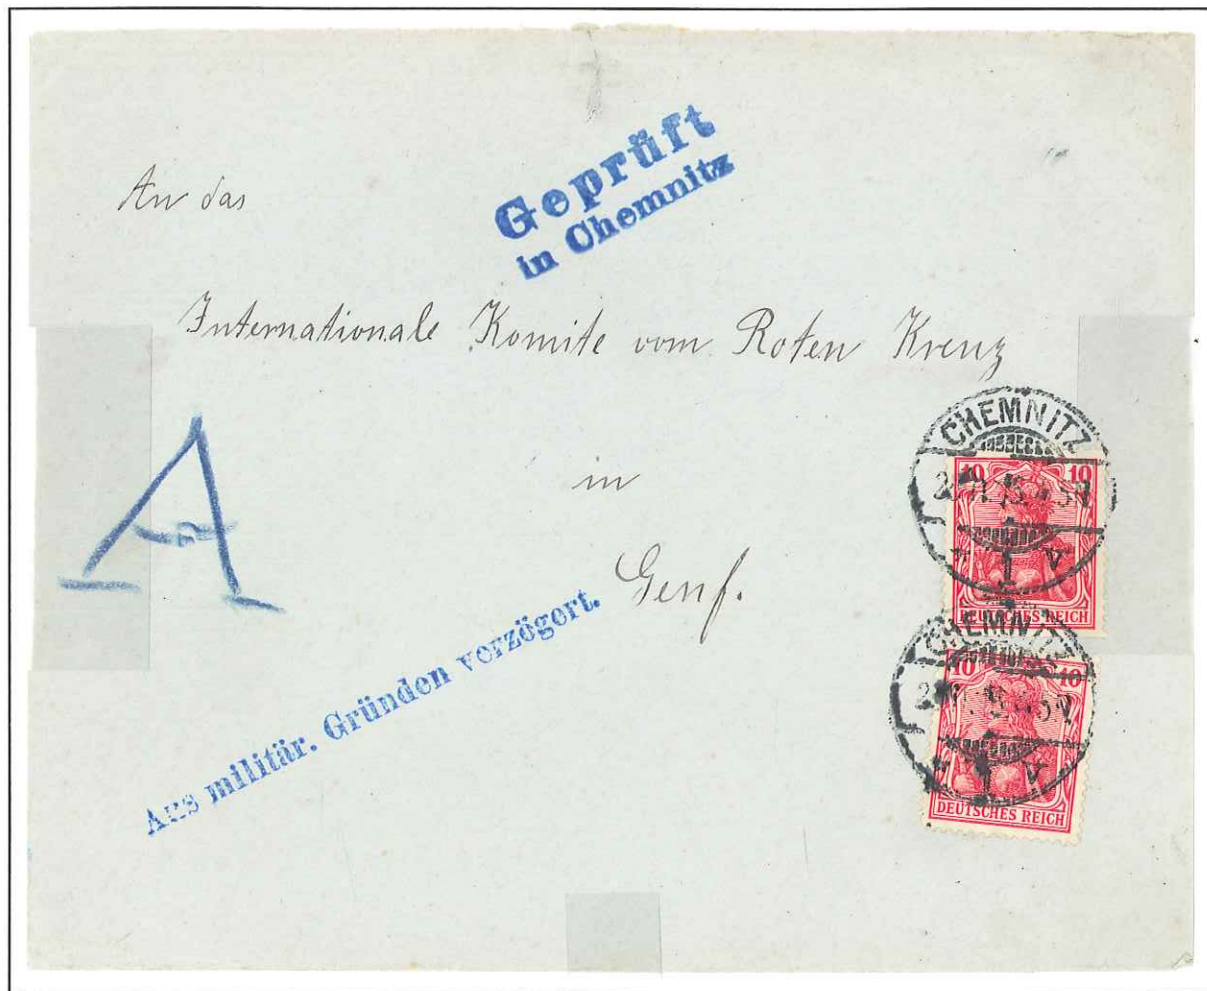 Geprüft
in Chemnitz
An das
Internationale Komite vom Roten Kreuz
A
in
Genf.
Aus militär. Gründen verzögert.
CHEMNITZ
1 V
10 10
DEUTSCHES REICH
CHEMNITZ
1 V
10 10
DEUTSCHES REICH